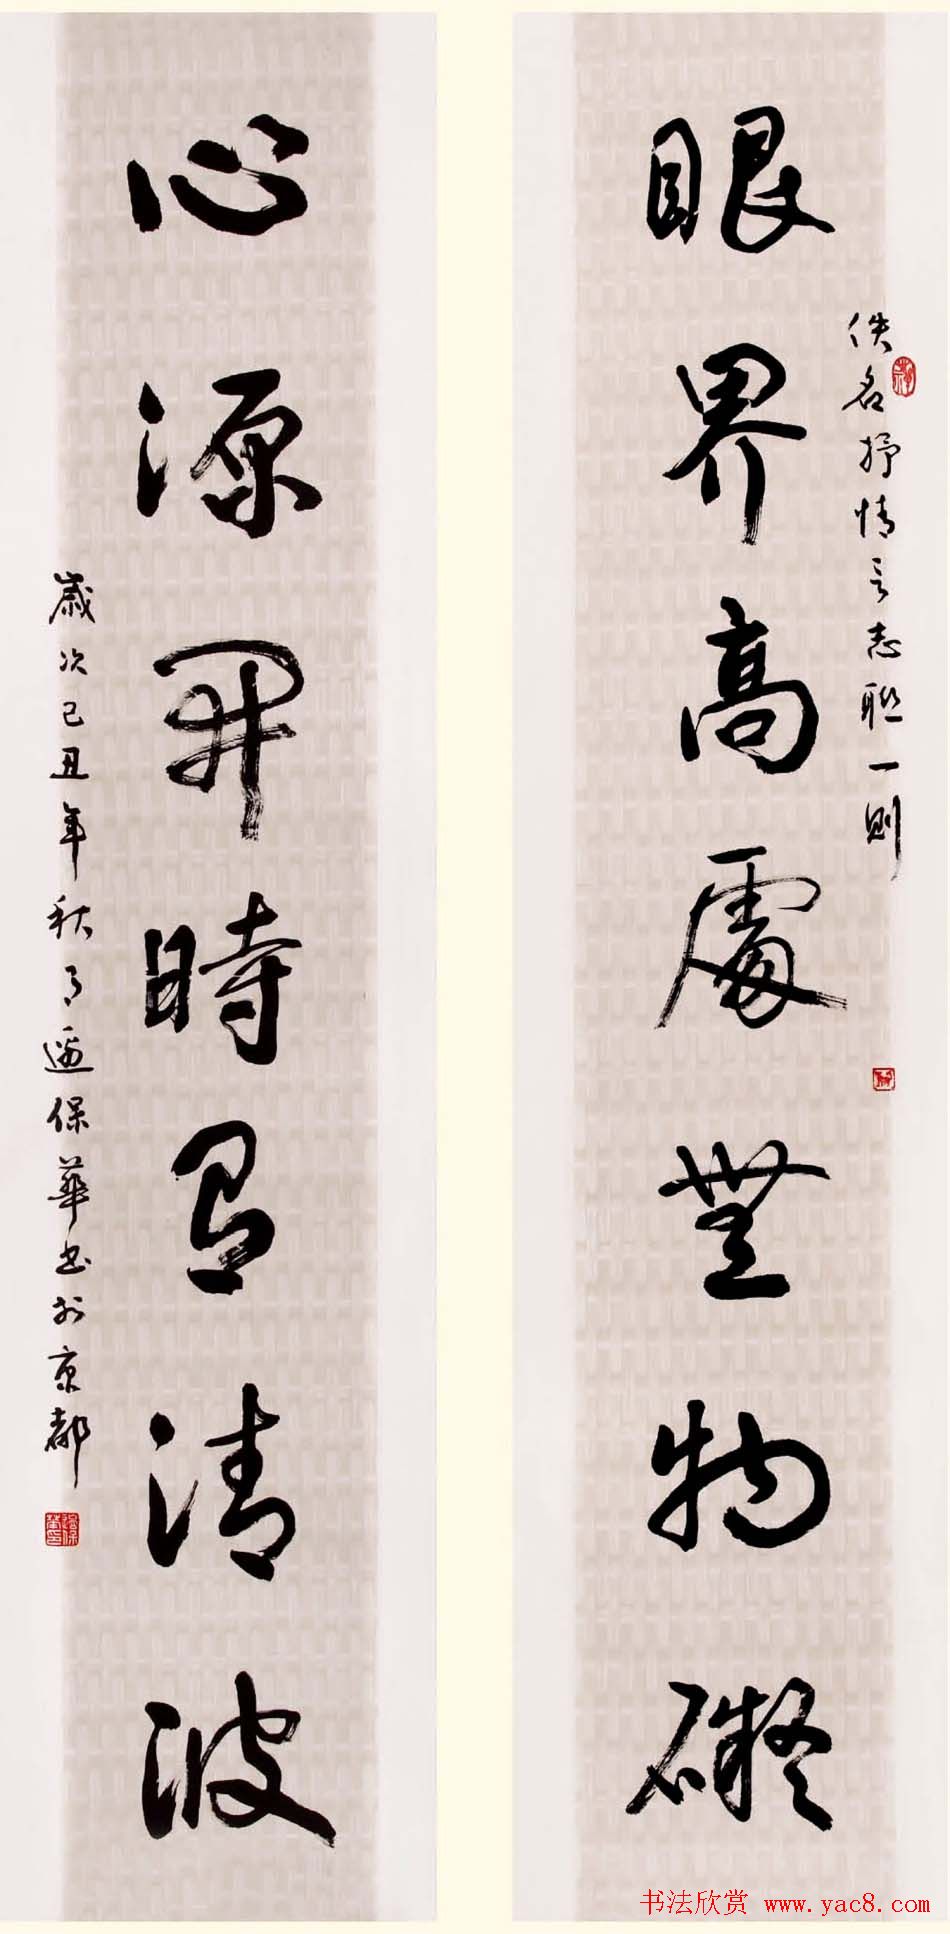 眼界高處無物礙
佚名抒情言志聯一則
心源開時有清波
歲次己丑年秋月遆保華书於京都
书法欣赏 www.yac8.com